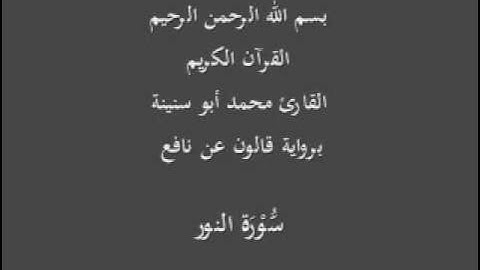 بسم الله الرحمن الرحيم
القرآن الكريم
القارئ محمد أبو سنينة
برواية قالون عن نافع
سُّوْرَة النور